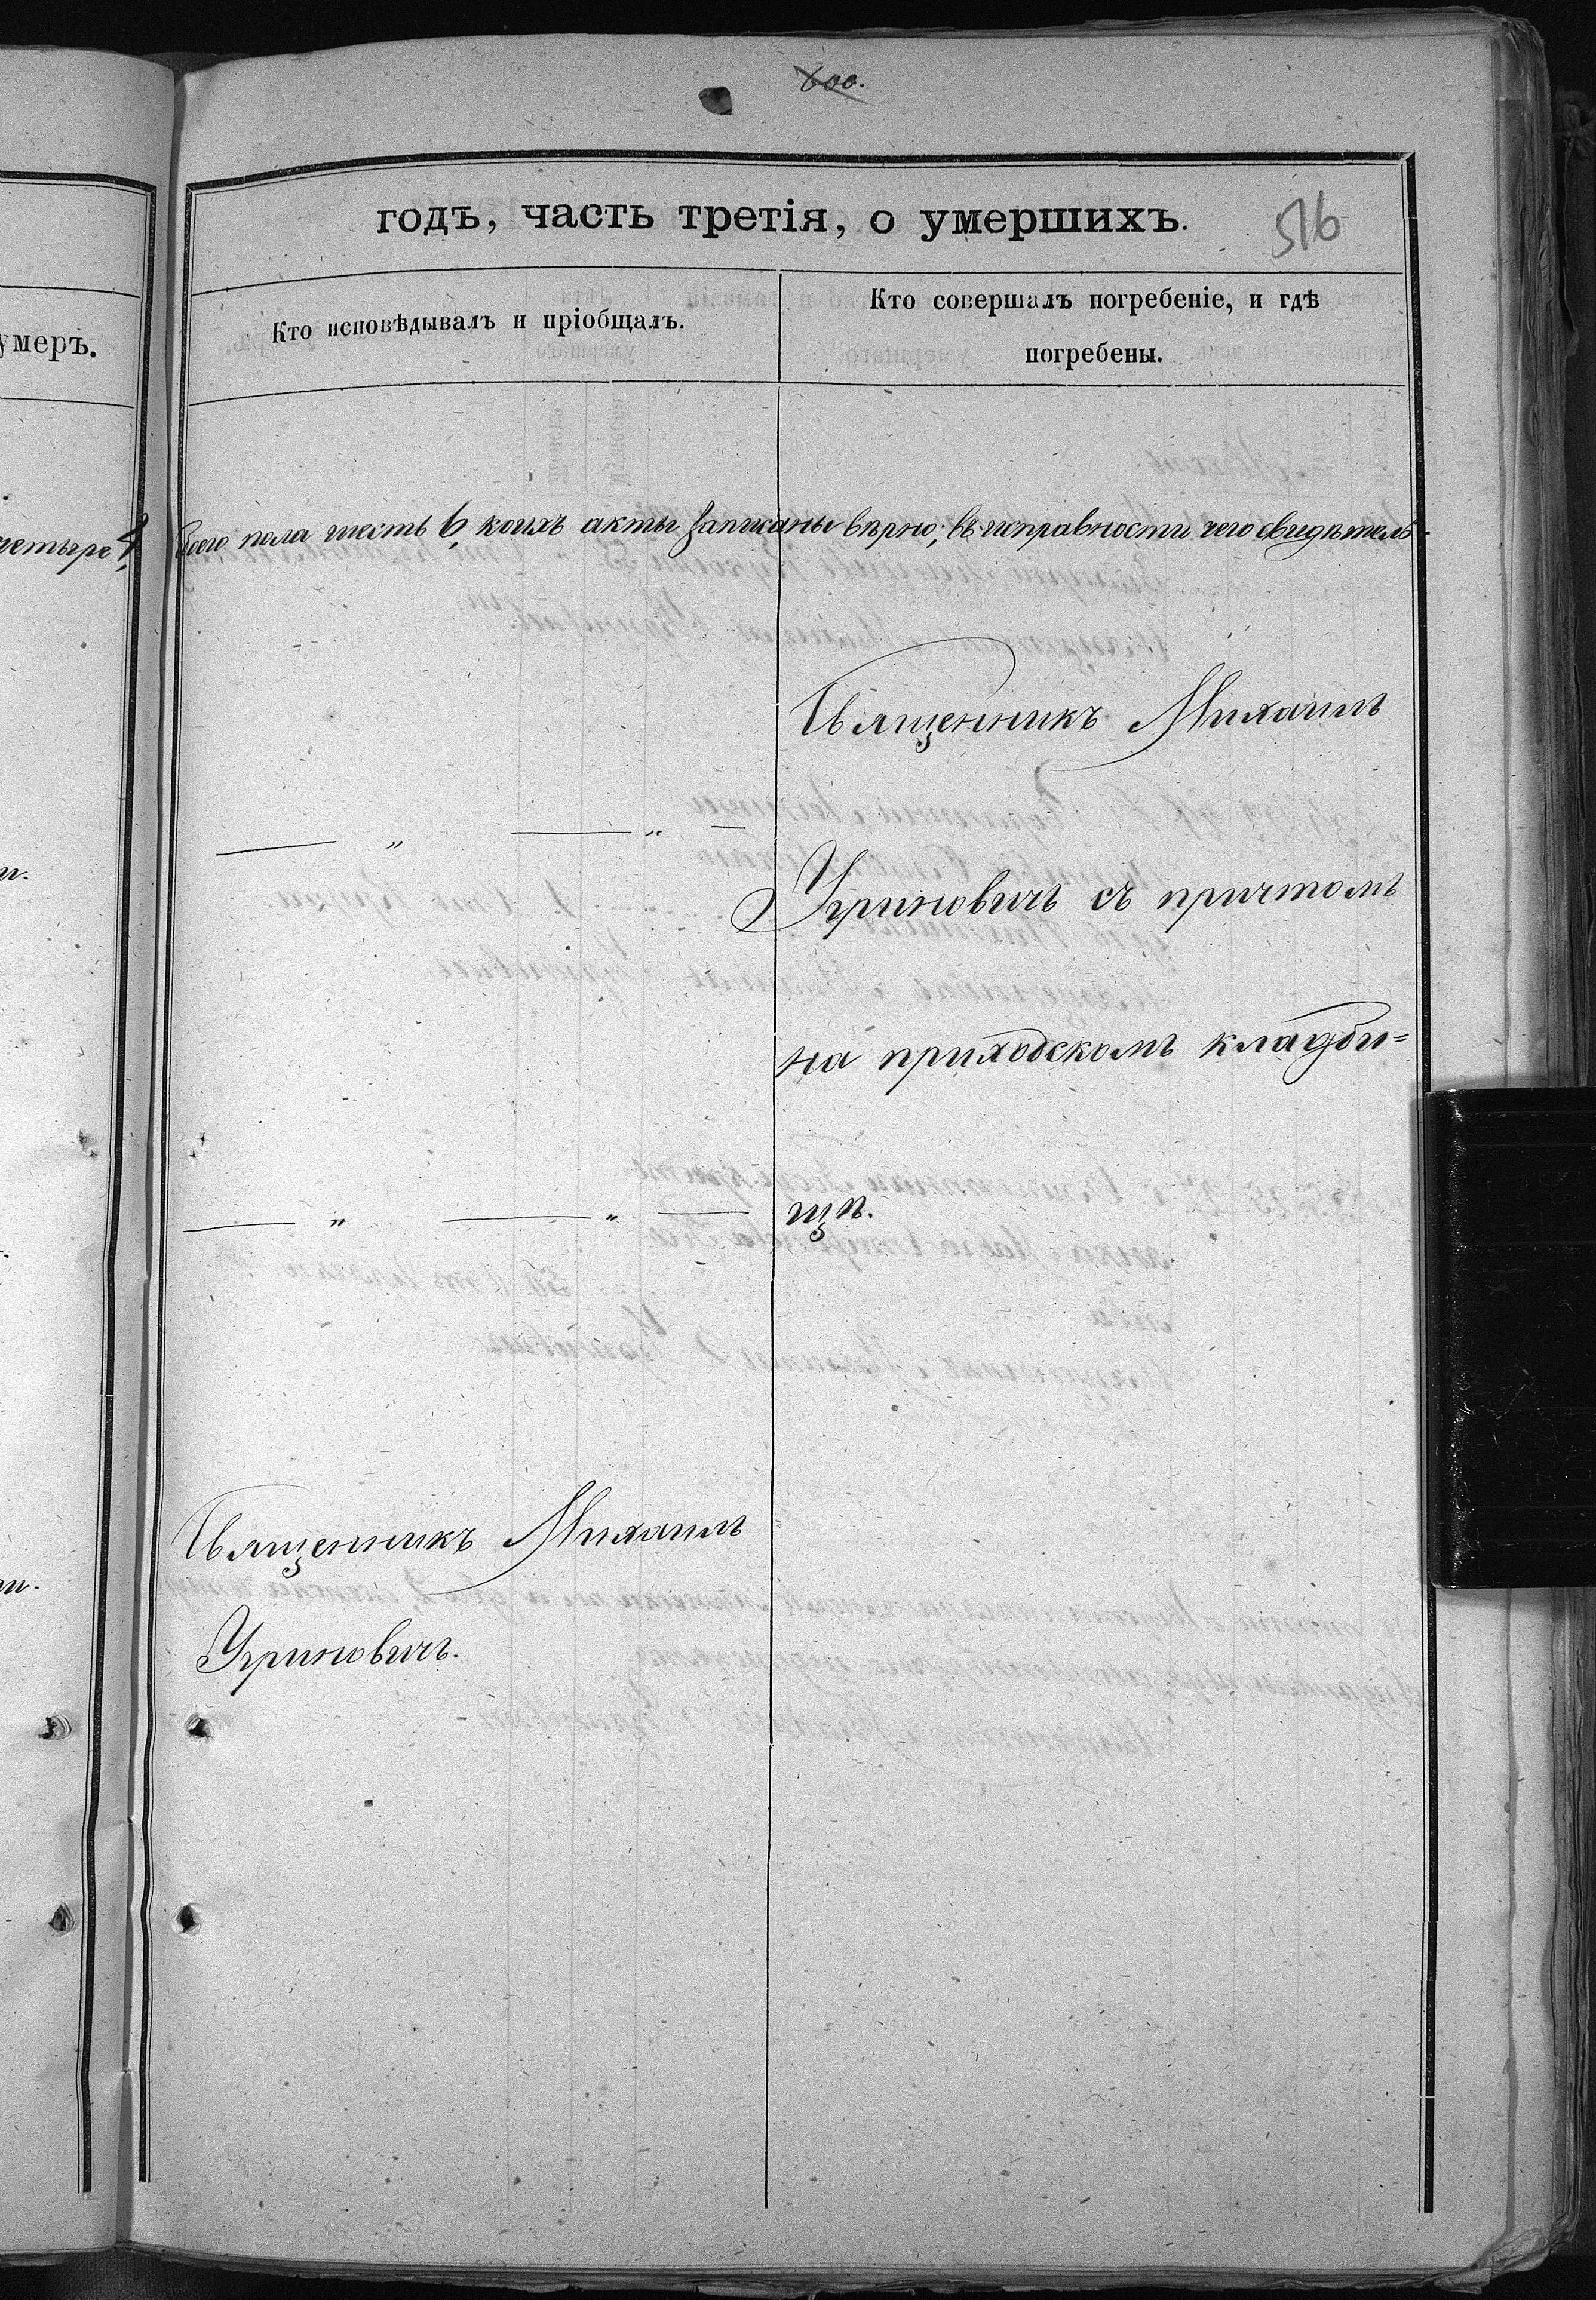 600.
годъ, часть третія, о умершихъ.
516
умеръ.
Кто исповѣдывалъ и пріобщалъ.
Кто совершалъ погребеніе, и гдѣ
погребены.
четыре 4,
боего пола шесть 6, коихъ акты записаны вѣрно; въ исправности чего свидѣтель-
Священникъ Михаилъ
— „ — „ —
Угриновичъ съ причтомъ
на приходскомъ кладби=
— „ — „ —
щѣ.
Священникъ Михаилъ
Угриновичъ.